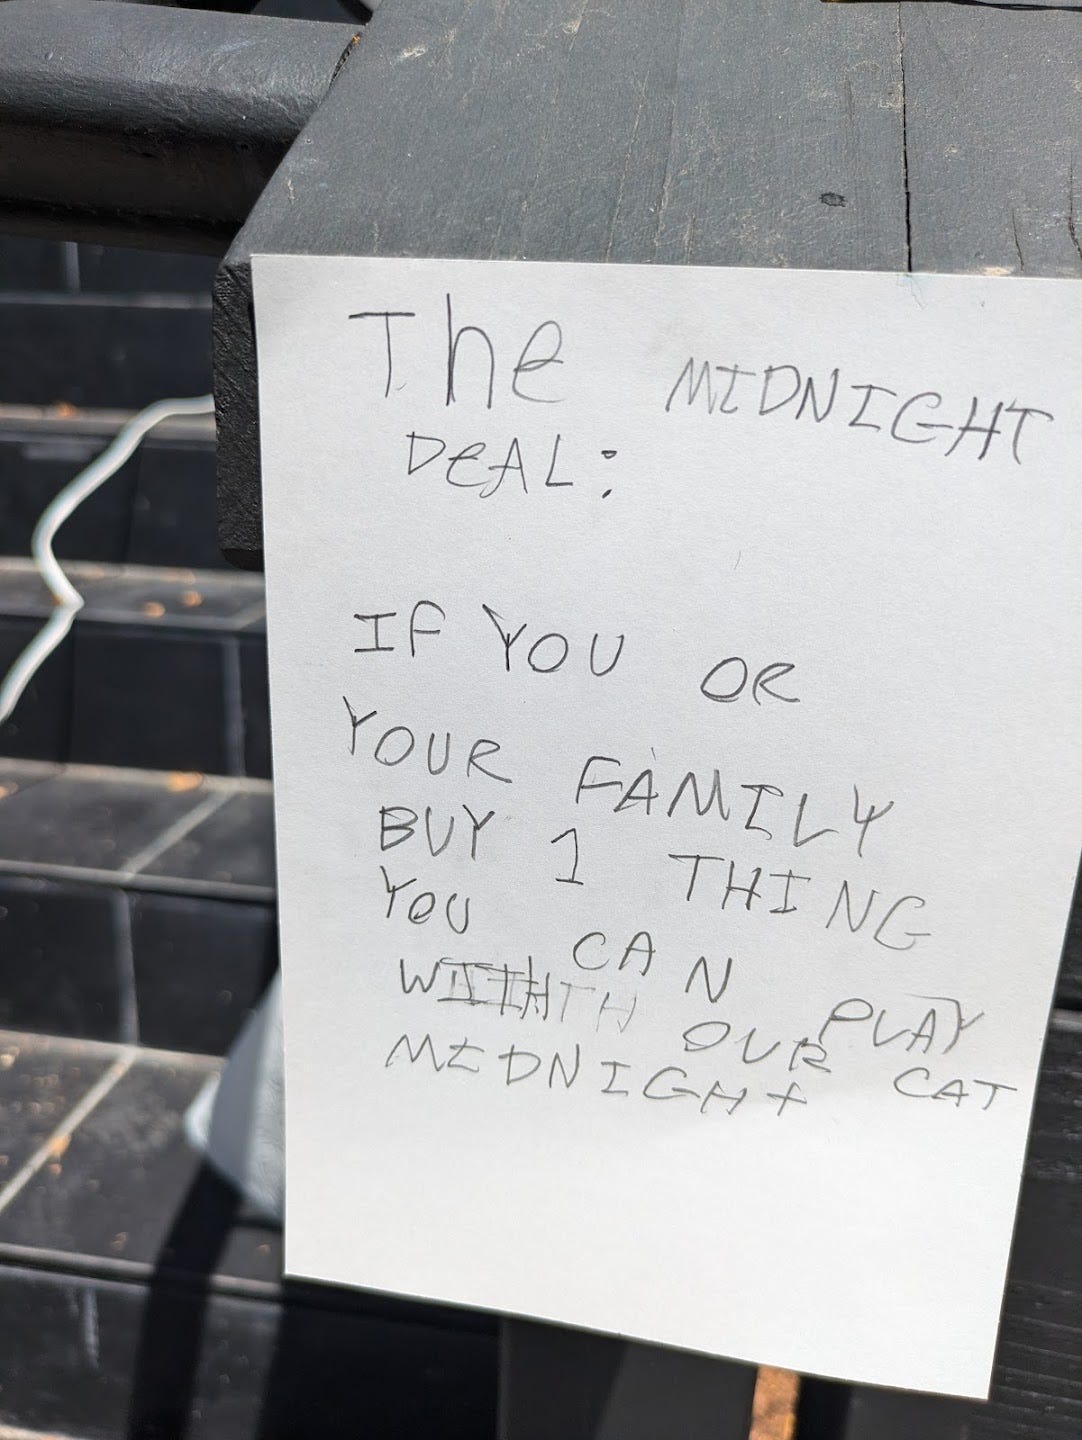 The MIDNIGHT
DeAL:
IF YOU OR
YOUR FAMILY
BUY 1 THING
YOU CAN PLAY
WITH OUR CAT
MIDNIGHT